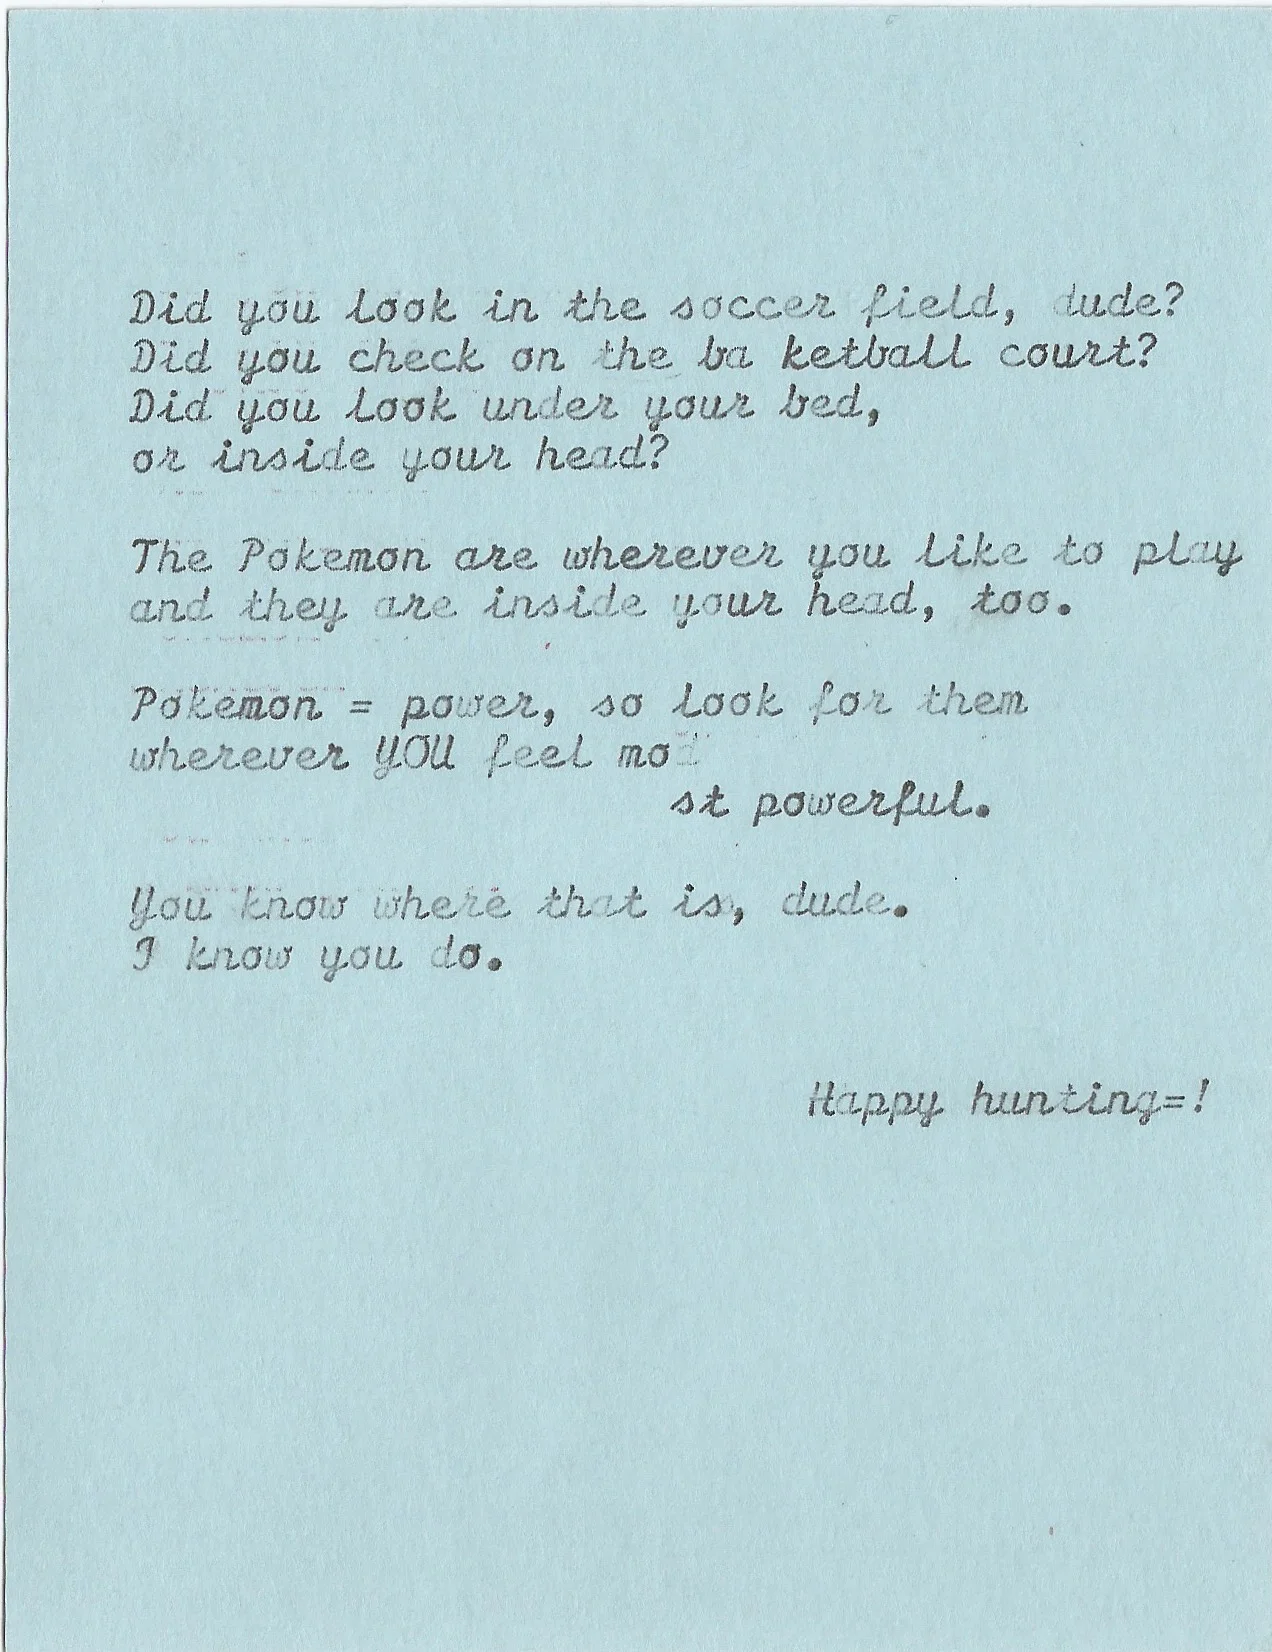 Did you look in the soccer field, dude?
Did you check on the ba ketball court?
Did you look under your bed,
or inside your head?
The Pokemon are wherever you like to play
and they are inside your head, too.
Pokemon = power, so look for them
wherever YOU feel mo
st powerful.
You know where that is, dude.
I know you do.
Happy hunting=!